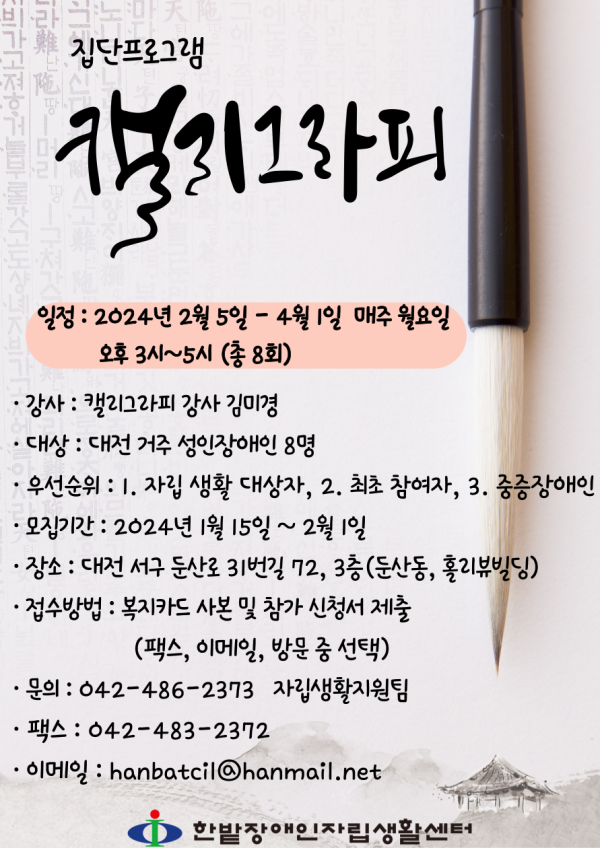 집단프로그램
캘리그라피
일정 : 2024년 2월 5일 - 4월 1일 매주 월요일
오후 3시~5시 (총 8회)
· 강사 : 캘리그라피 강사 김미경
· 대상 : 대전 거주 성인장애인 8명
· 우선순위 : 1. 자립 생활 대상자, 2. 최초 참여자, 3. 중증장애인
· 모집기간 : 2024년 1월 15일 ~ 2월 1일
· 장소 : 대전 서구 둔산로 31번길 72, 3층(둔산동, 홀리뷰빌딩)
· 접수방법 : 복지카드 사본 및 참가 신청서 제출
(팩스, 이메일, 방문 중 선택)
· 문의 : 042-486-2373 자립생활지원팀
· 팩스 : 042-483-2372
· 이메일 : hanbatcil@hanmail.net
한밭장애인자립생활센터